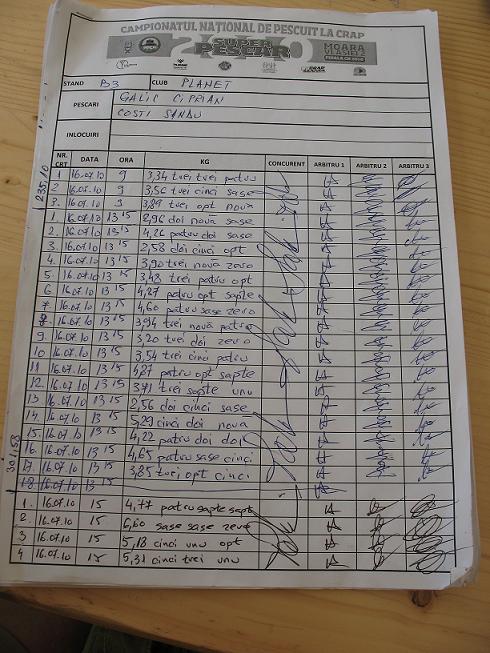 CAMPIONATUL NAȚIONAL DE PESCUIT LA CRAP
SUPER PESCAR
MOARA VLASIEI 2
STAND B3 CLUB PLANET
PESCARI GALIC CIPRIAN
COSTI SANDU
INLOCUIRI
NR. CRT DATA ORA KG CONCURENT ARBITRU 1 ARBITRU 2 ARBITRU 3
1 16.07.10 9 3,34 trei trei patru
2 16.07.10 9 3,56 trei cinci sase
3. 16.07.10 9 3,89 trei opt noua
1. 16.07.10 13 15 2,96 doi noua sase
2. 16.07.10 13 15 4,26 patru doi sase
3. 16.07.10 13 15 2,58 doi cinci opt
4. 16.07.10 13 15 3,90 trei noua zero
5 16.07.10 13 15 3,48 trei patru opt
6 16.07.10 13 15 4,87 patru opt sapte
7 16.07.10 13 15 4,60 patru sase zero
8. 16.07.10 13 15 3,94 trei noua patru
9. 16.07.10 13 15 3,20 trei doi zero
10 16.07.10 13 15 3,54 trei cinci patru
11 16.07.10 13 15 4,87 patru opt sapte
12. 16.07.10 13 15 3,71 trei sapte unu
13 16.07.10 13 15 2,56 doi cinci sase
14. 16.07.10 13 15 5,29 cinci doi noua
15. 16.07.10 13 15 4,22 patru doi doi
16. 16.07.10 13 15 4,65 patru sase cinci
17. 16.07.10 13 15 3,85 trei opt cinci
18 16.07.10 13 15
1. 16.07.10 15 4,77 patru sapte sapte
2. 16.07.10 15 6,60 sase sase zero
3 16.07.10 15 5,18 cinci unu opt
4 16.07.10 15 5,31 cinci trei unu